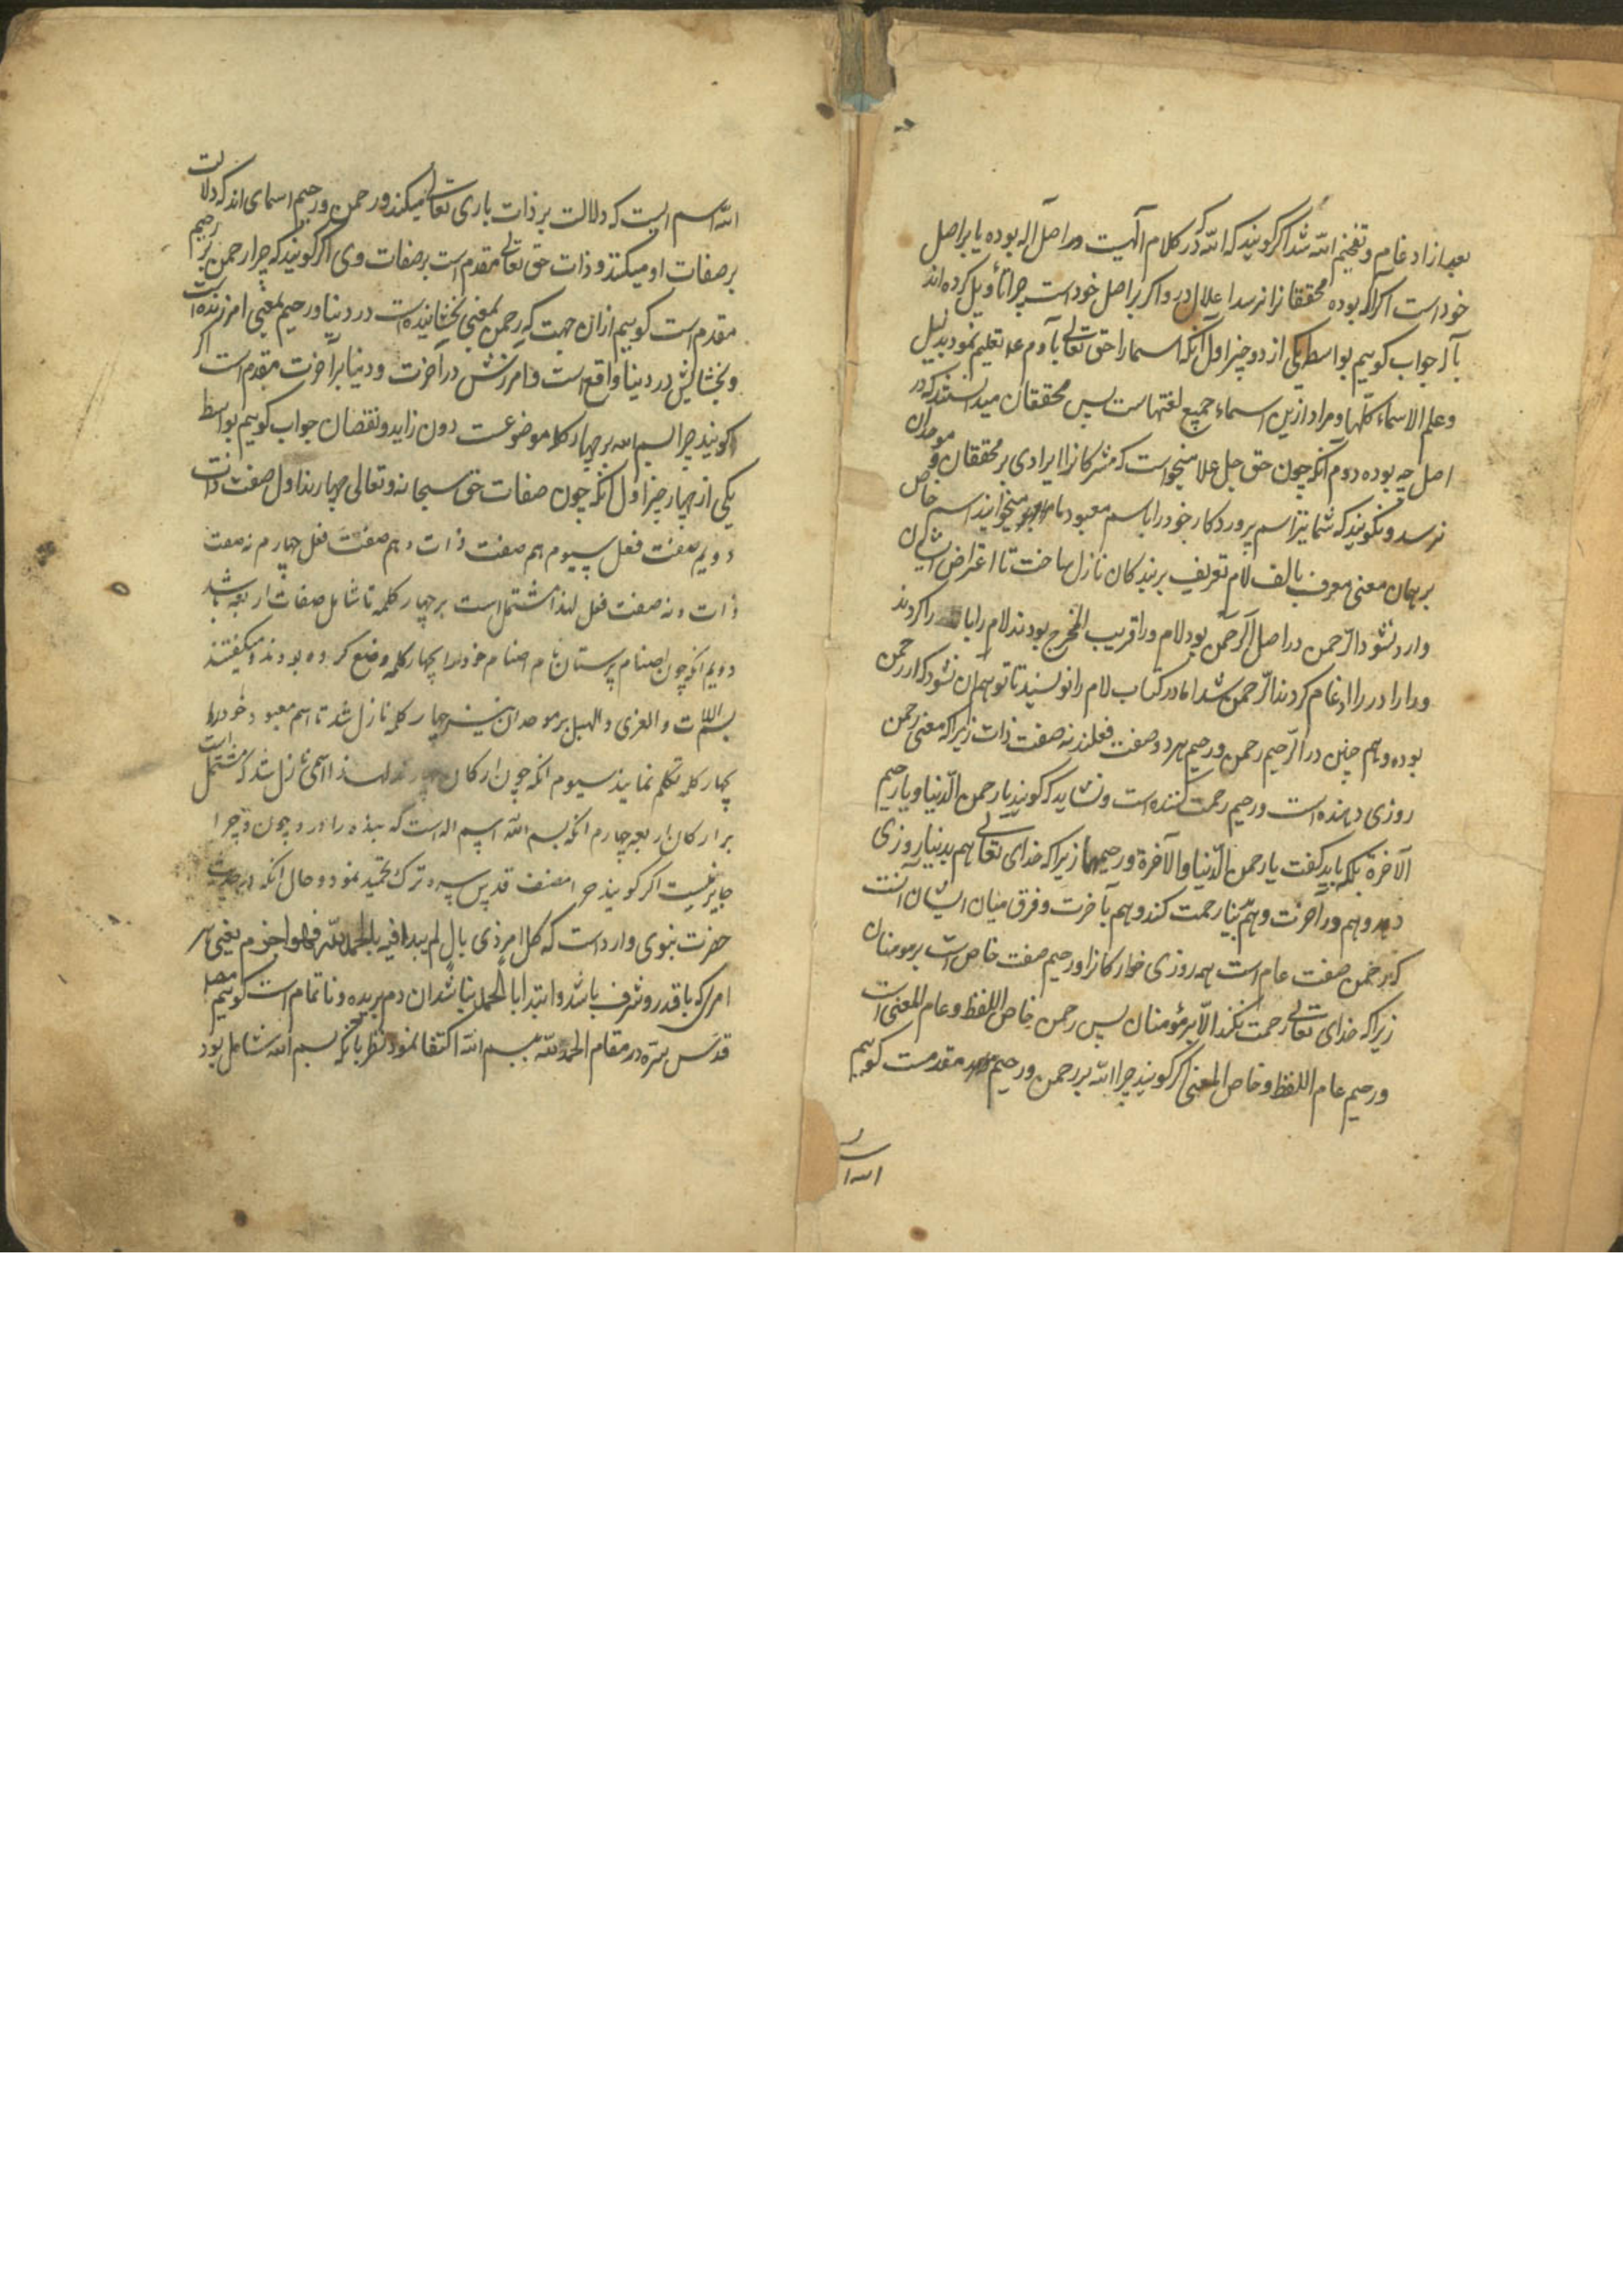 بعد از ادغام و تفخیم الله شد اگر گویند که الله که در کلام الهیت در اصل اله بوده یا بر اصل
خود است اگر اله بوده محققانرا نرسد اعلال در و اگر بر اصل خود است چرا تأویل کرده اند
باله جواب گوییم بواسطه یکی از دو چیز اول آنکه اسما را حق تعالی بآدم ع م تعلیم نمود بدلیل
وعلم آدم الاسماء کلها و مراد ازین اسماء جمیع لغتهاست پس محققان میدانستند که در
اصل چه بوده دوم آنکه چون حق جل علا میخواست که مشرکانرا ایرادی بر محققان و موحدان
نرسد و نگویند که شما نیز اسم پروردگار خود را باسم معبود ما میخوانید اسم خاص
بر همان معنی معرف بالف لام تعریف بر بندکان نازل ساخت تا اعتراض ایشان
وارد نشود الرحمن در اصل الرحمن بود لام و را قریب المخرج بودند لام را با را کردند
و را را در را ادغام کردند الرحمن شد اما در کتاب لام را نویسند تا توهم آن نشود که ار رحمن
بوده و هم چنین در الرحیم رحمن و رحیم هر دو صفت فعلند نه صفت ذات زیرا که معنی رحمن
روزی دهنده است و رحیم رحمت کننده است و نشاید که گویند یا رحمن الدنیا و یا رحیم
الآخرة بلکه باید گفت یا رحمن الدنیا والآخرة و رحیمهما زیرا که خدای تعالی هم بدنیا روزی
دهد و هم در آخرت و هم بدنیا رحمت کند و هم بآخرت و فرق میان ایشان آنست
که رحمن صفت عام است بهمه روزی خوارکانرا و رحیم صفت خاص است بر مومنان
زیرا که خدای تعالی رحمت نکند الا بر مؤمنان پس رحمن خاص اللفظ و عام المعنی است
و رحیم عام اللفظ و خاص المعنی اگر گویند چرا الله بر رحمن و رحیم مقدمست گوییم
الله اسم
الله اسم ایست که دلالت بر ذات باری تعالی میکند و رحمن و رحیم اسمای اند که دلالت
بر صفات او میکنند و ذات حق تعالی مقدم است بر صفات وی اگر گویند که چرا رحمن بر رحیم
مقدم است گوییم ازان جهت که رحمن بمعنی بخشاینده است در دنیا و رحیم بمعنی امرزنده است
و بخشایش در دنیا واقع است و امرزش در آخرت و دنیا بر آخرت مقدم است اگر
گویند چرا بسم الله بر چهار کلمه موضوعست دون زاید و نقصان جواب گوییم بواسطه
یکی از چهار چیز اول آنکه چون صفات حق سبحانه و تعالی چهارند اول صفت ذات
دویم صفت فعل سیوم هم صفت ذات و هم صفت فعل چهارم نه صفت
ذات و نه صفت فعل لهذا مشتمل است بر چهار کلمه تا شامل صفات اربعه باشد
دویم انکه چون اصنام پرستان نام اصنام خود را بچهار کلمه وضع کرده بودند و میگفتند
بسم اللات و العزی و الهبل بر موحدان نیز چهار کلمه نازل شد تا اسم معبود خود را
بچهار کلمه تکلم نمایند سیوم انکه چون ارکان چهارند لهذا اسمی نازل شد که مشتمل است
بر ارکان اربعه چهارم انکه بسم الله اسم اله است که بنده را در و چون و چرا
جایز نیست اگر گویند چرا مصنف قدس سره ترک تحمید نمود و حال انکه در حدیث
حضرت نبوی وارد است که کل امر ذی بال لم یبدا فیه بالحمد لله فهو اجزم یعنی هر
امری که با قدر و شرف باشد و ابتدا بالحمد نباشد آن دم بریده و ناتمام است گوییم مصنف
قدس سره در مقام الحمد لله ببسم الله اکتفا نمود نظر بانکه بسم الله شامل بود